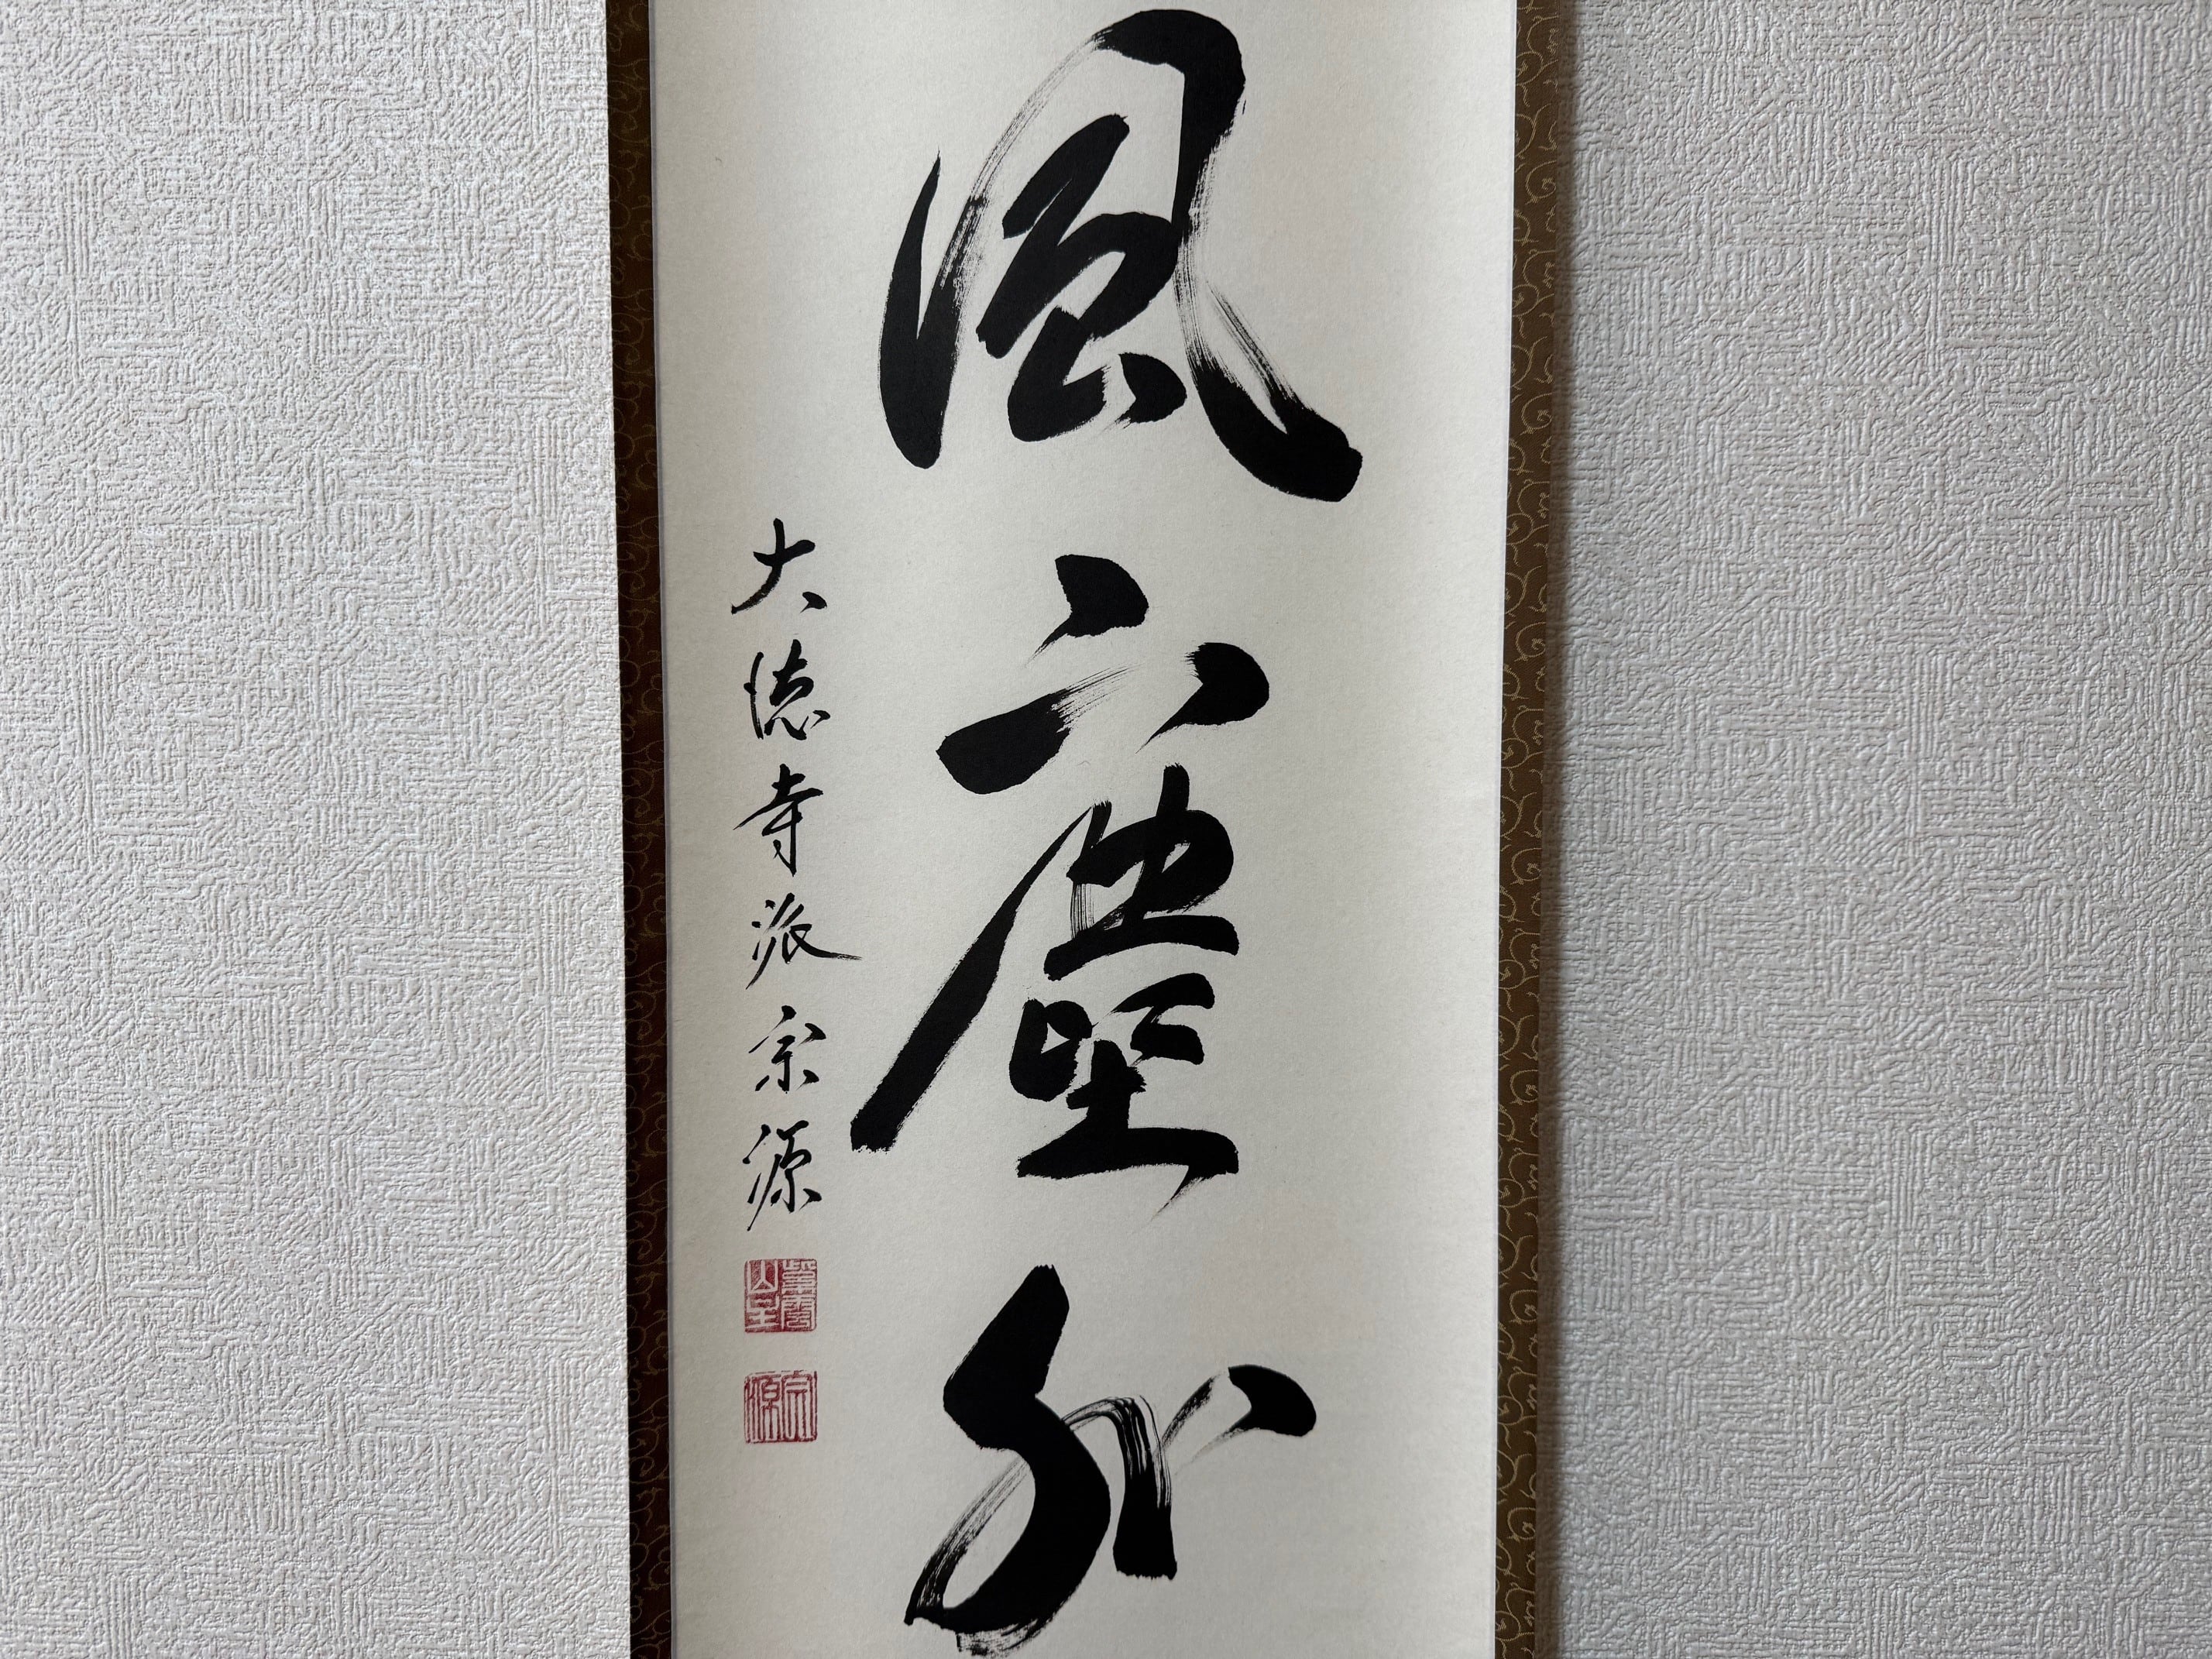 風六塵外
大徳寺派宗源
宗源